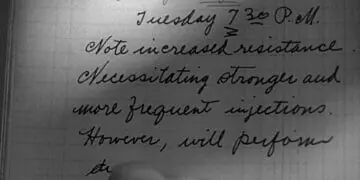 Tuesday 7 30 P.M.
Note increased resistance.
Necessitating stronger and
more frequent injections.
However, will perform